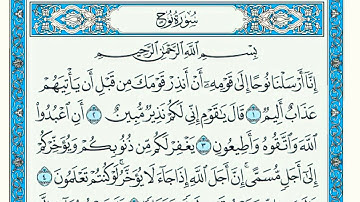 سُورَةُ نُوحٍ
بِسْمِ اللَّهِ الرَّحْمَٰنِ الرَّحِيمِ
إِنَّا أَرْسَلْنَا نُوحًا إِلَىٰ قَوْمِهِ أَنْ أَنذِرْ قَوْمَكَ مِن قَبْلِ أَن يَأْتِيَهُمْ
عَذَابٌ أَلِيمٌ ١ قَالَ يَٰقَوْمِ إِنِّي لَكُمْ نَذِيرٌ مُّبِينٌ ٢ أَنِ اعْبُدُوا
اللَّهَ وَاتَّقُوهُ وَأَطِيعُونِ ٣ يَغْفِرْ لَكُم مِّن ذُنُوبِكُمْ وَيُؤَخِّرْكُمْ
إِلَىٰ أَجَلٍ مُّسَمًّى إِنَّ أَجَلَ اللَّهِ إِذَا جَاءَ لَا يُؤَخَّرُ لَوْ كُنتُمْ تَعْلَمُونَ ٤